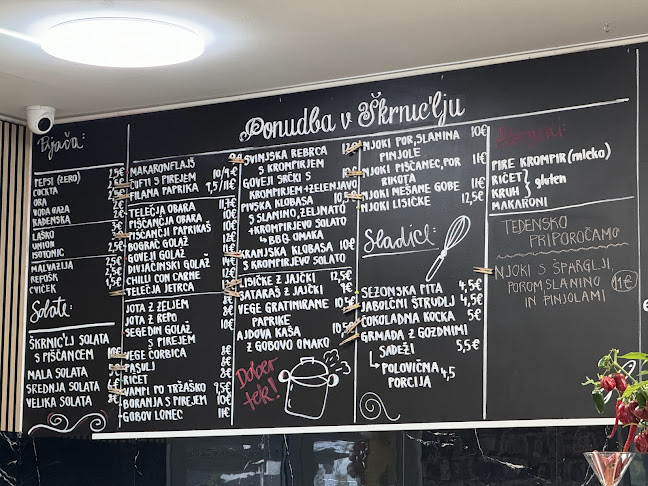 Ponudba v Škrnic'lju
Pijača:
PEPSI (ZERO) 2,5€
COCKTA 2,5€
ORA 2,5€
VODA GAZA
RADENSKA
LAŠKO 3€
UNION
ISOTONIC
MALVAZIJA
REFOŠK
CVIČEK
Solate:
ŠKRNIC'LJ SOLATA
S PIŠČANCEM 10€
MALA SOLATA
SREDNJA SOLATA
VELIKA SOLATA
MAKARONFLAJŠ 10/9€
ČUFTI S PIREJEM
FILANA PAPRIKA 7,5/11€
TELEČJA OBARA
PIŠČANČJA OBARA
PIŠČANČJI PAPRIKAŠ
BOGRAČ GOLAŽ
GOVEJI GOLAŽ
DIVJAČINSKI GOLAŽ
CHILI CON CARNE
TELEČJA JETRCA
JOTA Z ZELJEM
JOTA Z REPO
SEGEDIN GOLAŽ
S PIREJEM
VEGE ČORBICA
PASULJ
RIČET
VAMPI PO TRŽAŠKO
BORANJA S PIREJEM
GOBOV LONEC 11€
SVINJSKA REBRCA
S KROMPIRJEM
GOVEJI SRČKI S
KROMPIRJEM+ZELENJAVO
PIVSKA KLOBASA
S SLANINO, ZELJNATO
+KROMPIRJEVO SOLATO
↳ BBQ OMAKA
KRANJSKA KLOBASA 10€
S KROMPIRJEVO SOLATO
LISIČKE Z JAJČKI 12,5€
SATARAŠ Z JAJČKI 9€
VEGE GRATINIRANE 10€
PAPRIKE
AJDOVA KAŠA
Z GOBOVO OMAKO
Dober
tek!
NJOKI POR, SLANINA 10€
PINJOLE
NJOKI PIŠČANEC, POR
RIKOTA 11€
NJOKI MEŠANE GOBE 11€
NJOKI LISIČKE 12,5€
Sladice:
SEZONSKA PITA 4,5€
JABOLČNI ŠTRUDLJ 4,5€
ČOKOLADNA KOCKA 5€
GRMADA Z GOZDNIMI
SADEŽI 5,5€
↳ POLOVIČNA
PORCIJA 4,5
Alergeni:
PIRE KROMPIR (mleko)
RIČET
KRUH } gluten
MAKARONI
TEDENSKO
PRIPOROČAMO
NJOKI S ŠPARGLJI,
POROM, SLANINO
IN PINJOLAMI 11€